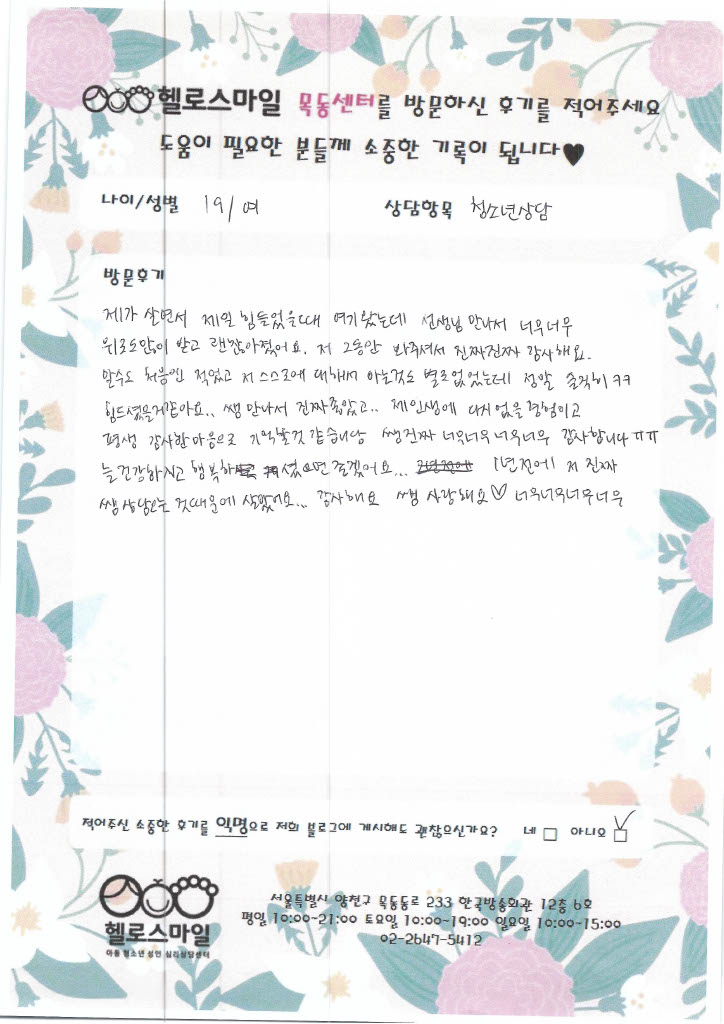 헬로스마일 목동센터를 방문하신 후기를 적어주세요
도움이 필요한 분들께 소중한 기록이 됩니다♥
나이/성별 19/여 상담항목 청소년상담
방문후기
제가 살면서 제일 힘들었을때 여기왔는데 선생님 만나서 너무너무
위로도많이 받고 괜찮아졌어요. 저 그동안 봐주셔서 진짜진짜 감사해요.
말수도 처음엔 적었고 저 스스로에 대해서 아는것도 별로없었는데 정말 솔직히 ㅋㅋ
힘드셨을거같아요.. 쌤 만나서 진짜좋았고.. 제인생에 다시없을경험이고
평생 감사한마음으로 기억할것 같습니당 쌤진짜 너무너무너무너무 감사합니다ㅠㅠ
늘건강하시고 행복하셨으면 좋겠어요... 1년전에 저 진짜
쌤 상담오는 것때문에 살았어요... 감사해요 쌤 사랑해요♡ 너무너무너무너무
적어주신 소중한 후기를 익명으로 저희 블로그에 게시해도 괜찮으신가요? 네 □ 아니요 ☑
헬로스마일
아동 청소년 성인 심리상담센터
서울특별시 양천구 목동동로 233 한국방송회관 12층 6호
평일 10:00-21:00 토요일 10:00-19:00 일요일 10:00-15:00
02-2647-5412